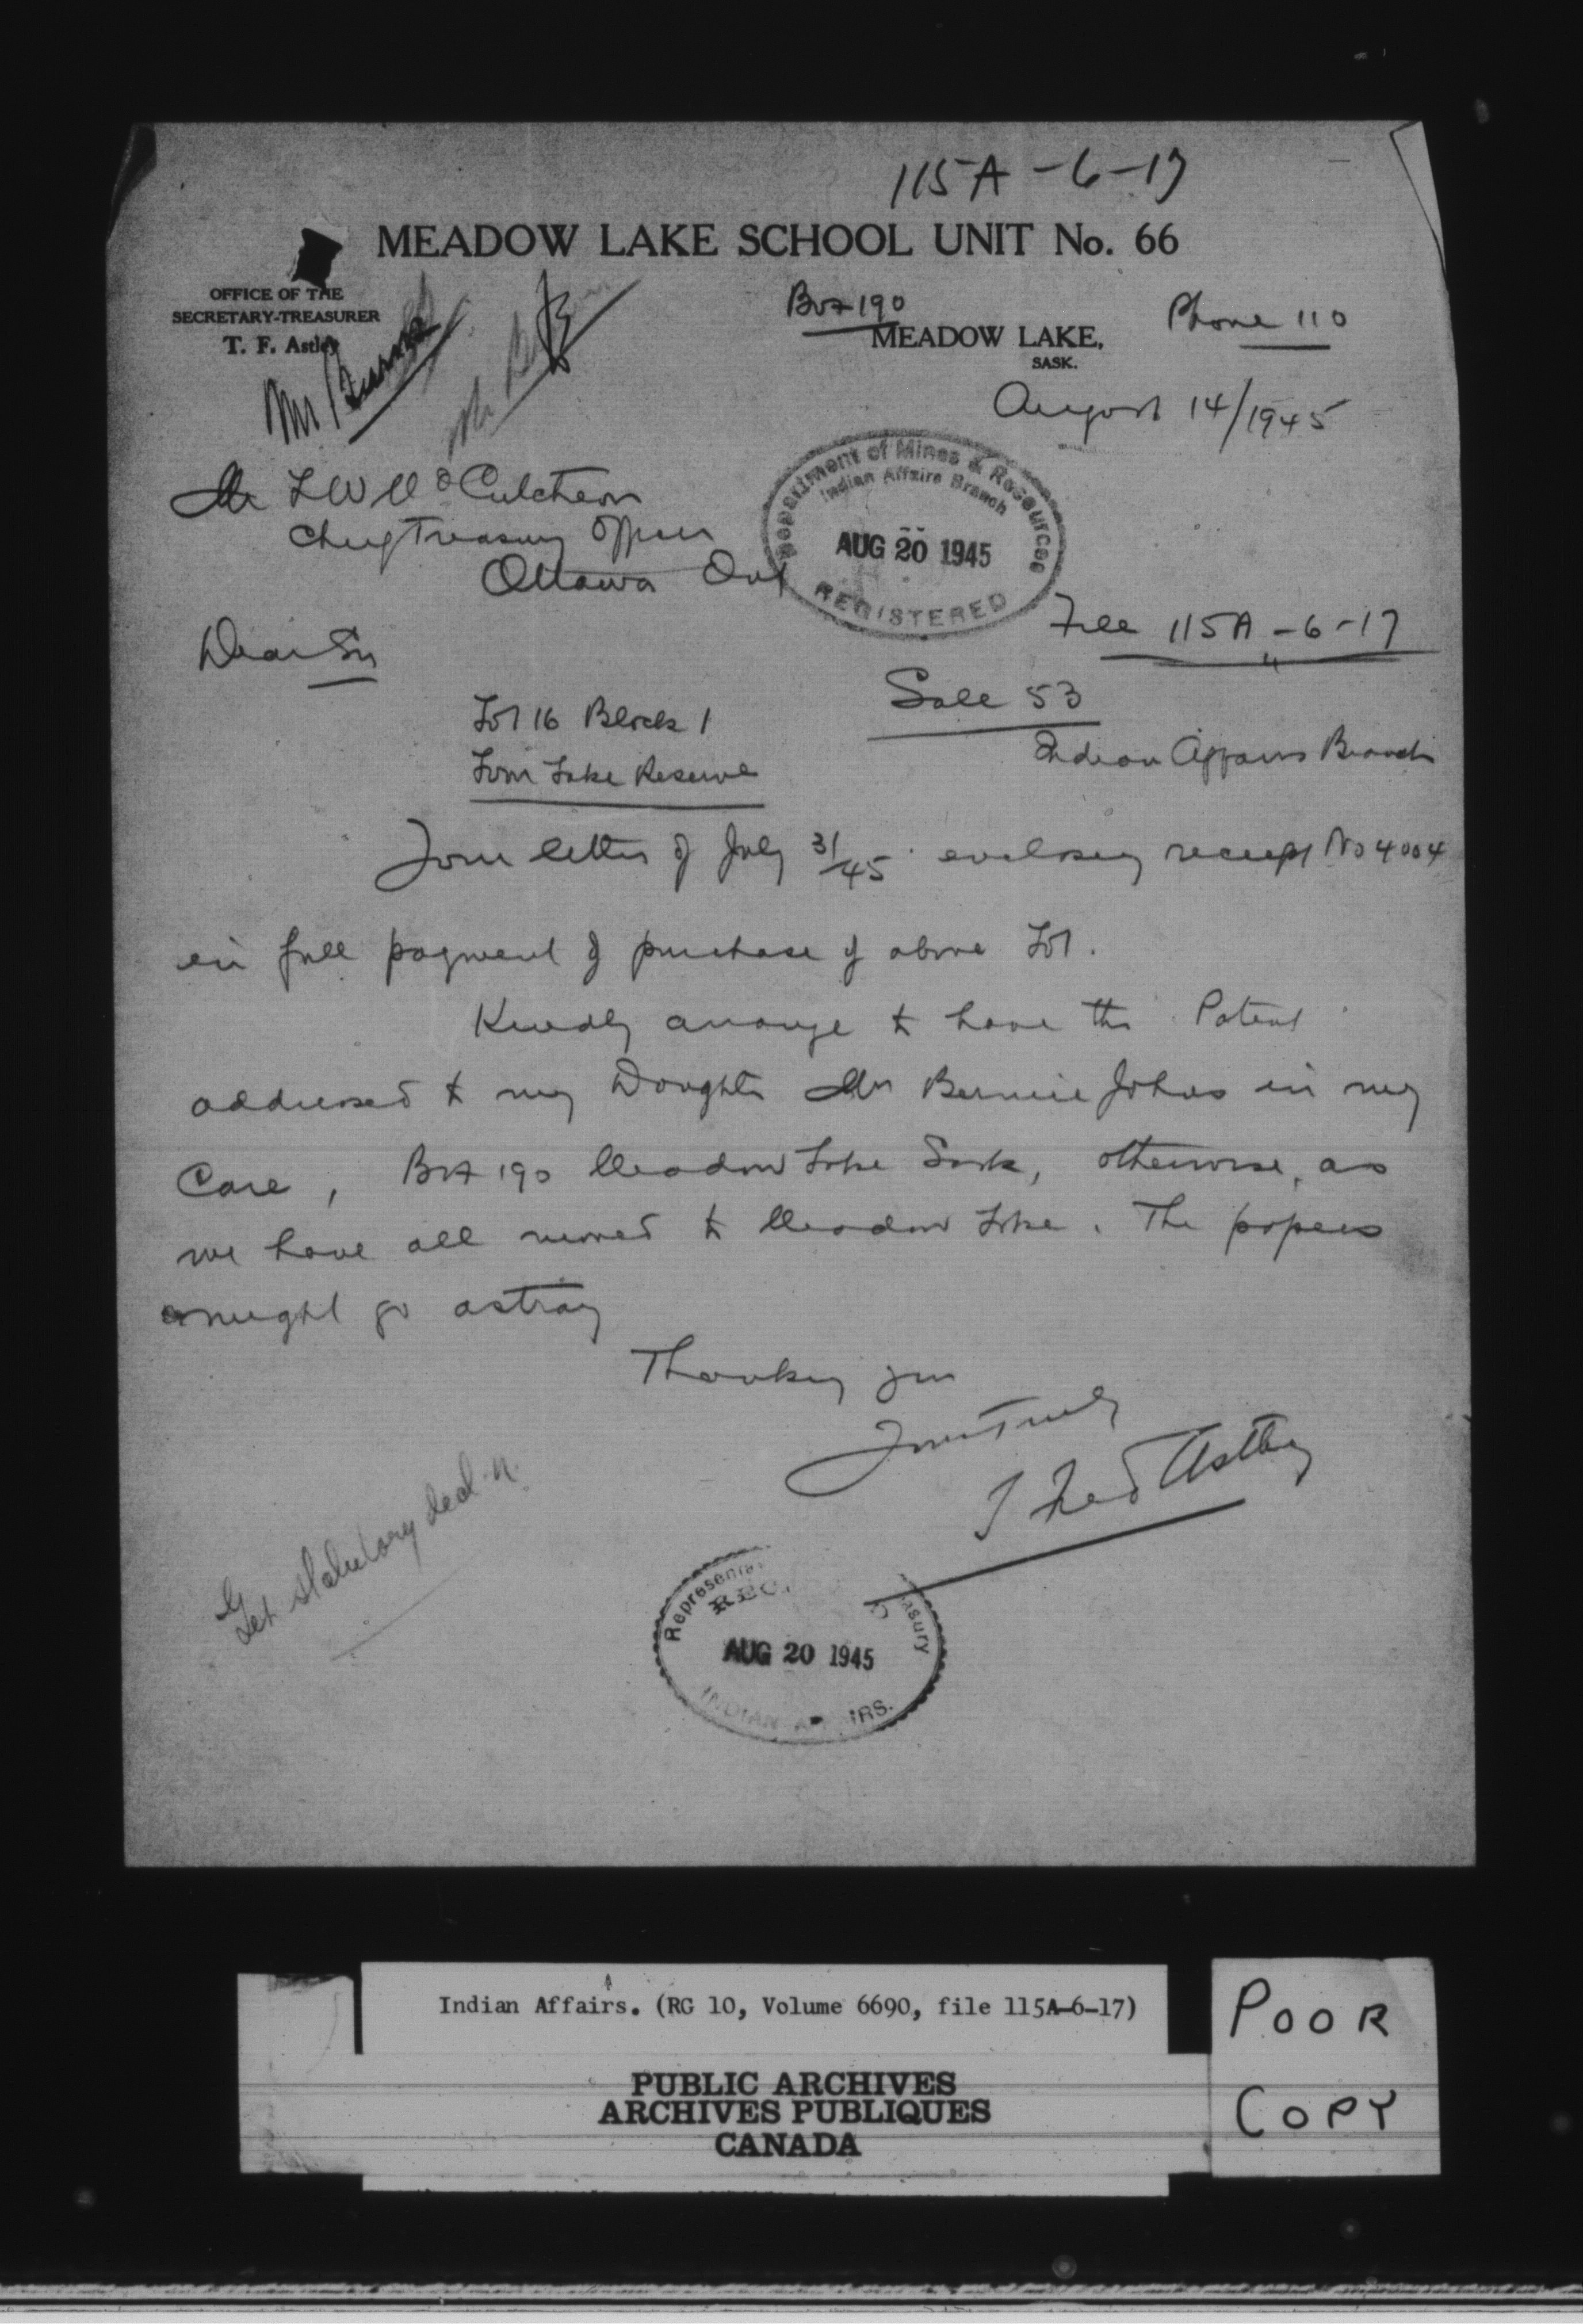 115A-6-17
MEADOW LAKE SCHOOL UNIT No. 66
OFFICE OF THE
SECRETARY-TREASURER
T. F. Astley
Box 190
Phone 110
MEADOW LAKE,
SASK.
August 14/1945
Mr
Mr L W McCutcheon
Chief Treasury Officer
Ottawa Ont
Department of Mines & Resources
Indian Affairs Branch
AUG 20 1945
REGISTERED
Dear Sir
File 115A-6-17
Sale 53
Lot 16 Block 1
Loon Lake Reserve
Indian Affairs Branch
Your letter of July 31/45 enclosing receipt No 4004
in full payment of purchase of above Lot.
Kindly arrange to have the Patent
addressed to my Daughter Mrs Bernice Johns in my
Care, Box 190 Meadow Lake Sask, otherwise, as
we have all moved to Meadow Lake. The papers
might go astray
Thanking you
Yours Truly
T Fred Astley
Get statutory decl'n.
Representa asury
REC D
AUG 20 1945
INDIAN AFFAIRS.
Indian Affairs. (RG 10, Volume 6690, file 115A-6-17)
PUBLIC ARCHIVES
ARCHIVES PUBLIQUES
CANADA
POOR
COPY